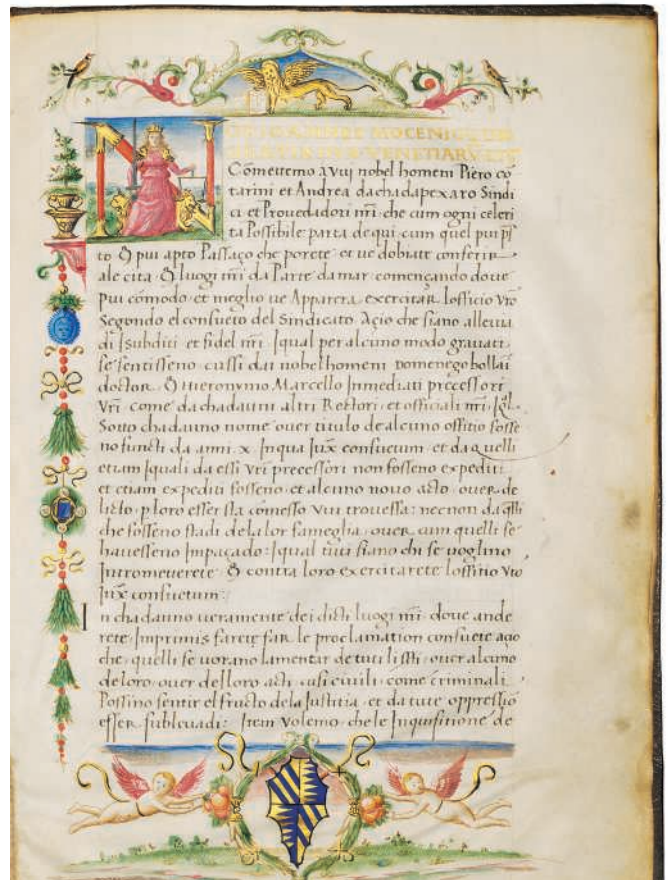 IOANNES MOCENIGO DEI
GRATIA DVX VENETIARV ETC
Comettemo a Vuj nobel homeni Piero cō
tarini et Andrea dachadapexaro Sindi
ci et Provedadori nr̄i che cum ogni celeri
ta Possibile parta de qui cum quel pui
to & pui apto Passaço che porete et ve dobiate conferir
ale cita & luogi nr̄i da Parte da mar començando dove
pui comodo et meglio ve Apparera exercitar lofficio Vr̄o
Segondo el consueto del Sindicato Açio che siano allevia
di Isubditi et fidel nr̄i Iqual per alcuno modo gravati
se sentisseno cussi dai nobelhomeni Domenego bollai
doctor & Hieronymo Marcello Inmediati precessori
Vr̄i come dachadauni altri Rectori et officiali nr̄i
Sotto chadauno nome over titulo de alcuno offitio fosse
no functi da anni x Inqua Iux̄ consuetum et da quelli
etiam Iquali da essi Vr̄i precessori non fosseno expediti
et etiam expediti fosseno et alcuno novo acto over de
licto ploro esser sta comesso Vui trovessa necnon da qlli
che fosseno stadi dela lor fameglia over cum quelli se
havesseno Impaçado Iqual tuti siano chi se voglino
Intrometerete & contra loro exercitarete loffitio Vr̄o
Iux̄ consuetum
In chadauno veramente dei dicti luogi nr̄i dove ande
rete Imprimis farete far le proclamation consuete açio
che quelli se vorano lamentar de tuti li over alcuno
de loro over delloro acti cusi civili come criminali
Possino sentir el fructo dela Iustitia et da tute oppressiō
esser sublevadi Item Volemo che le Inquisitione de